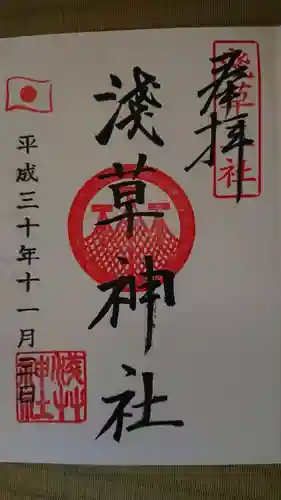 奉拝
淺草神社
平成三十年十一月三日
淺草社
淺草神社